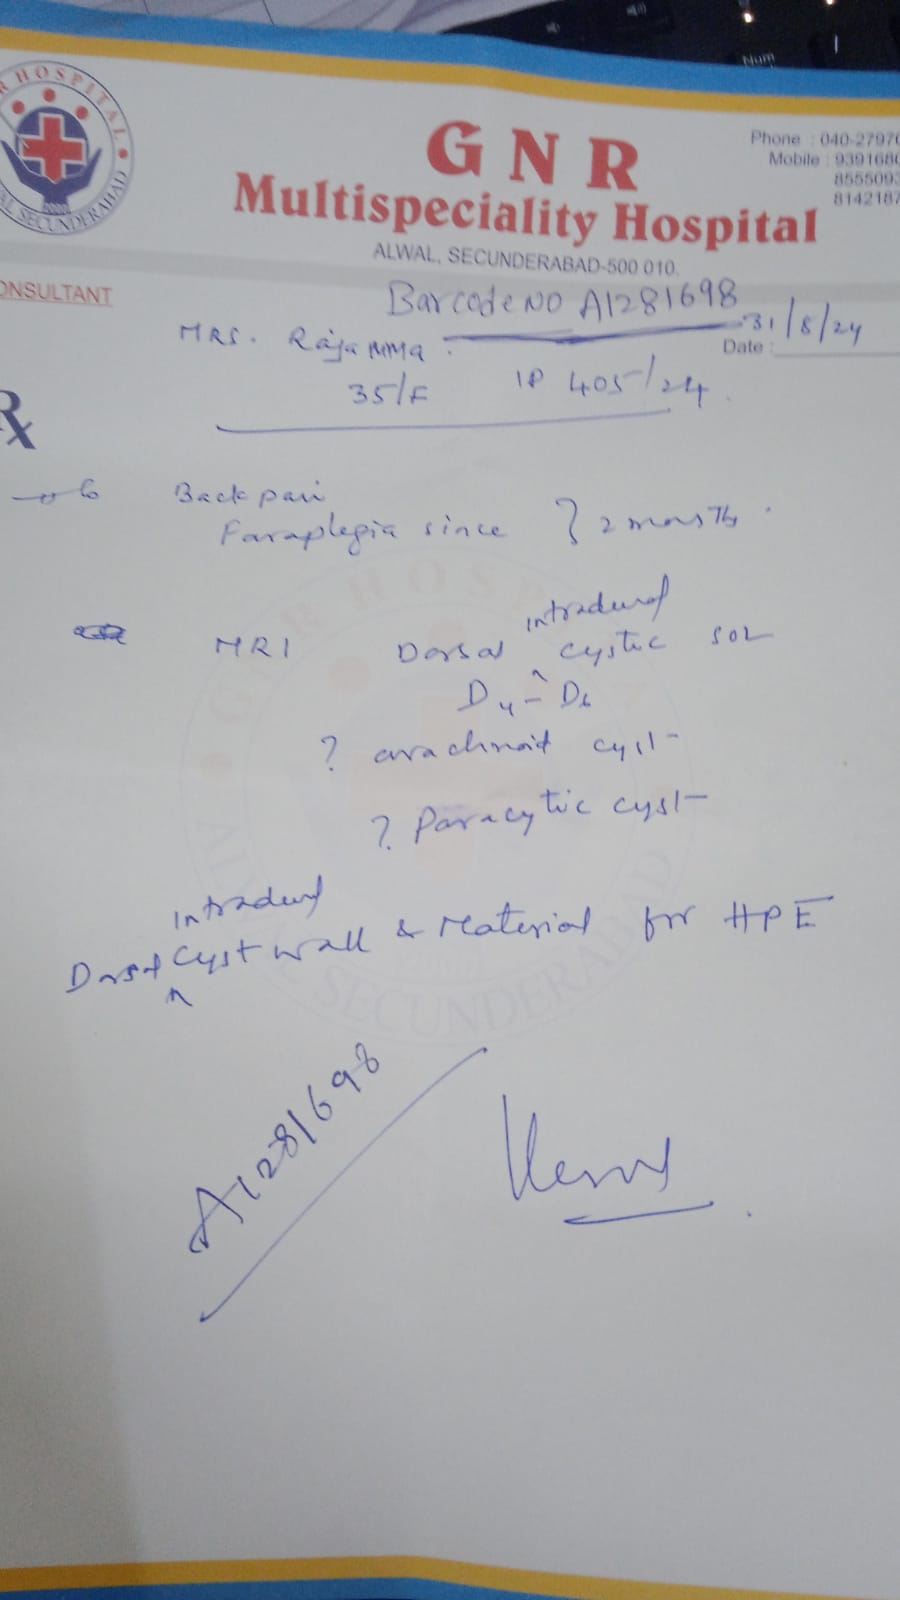 Num
R HOSPITAL
AL SECUNDERABAD
GNR
Multispeciality Hospital
ALWAL, SECUNDERABAD-500 010.
Phone : 040-2797
Mobile : 939168
855509
814218
ONSULTANT
Barcode NO A1281698
31/8/24
Date :
MRS. Rajamma.
35/F IP 405/24.
Rx
Back pain
Faraplegia since } 2 months.
MRI Dorsal intradural cystic SOL
D4 - D6
? arachnoid cyst
? Paracytic cyst
Dorsal intradural cyst wall & Material for HPE
A1281698
GNR HOSPITAL
ALWAL SECUNDERABAD